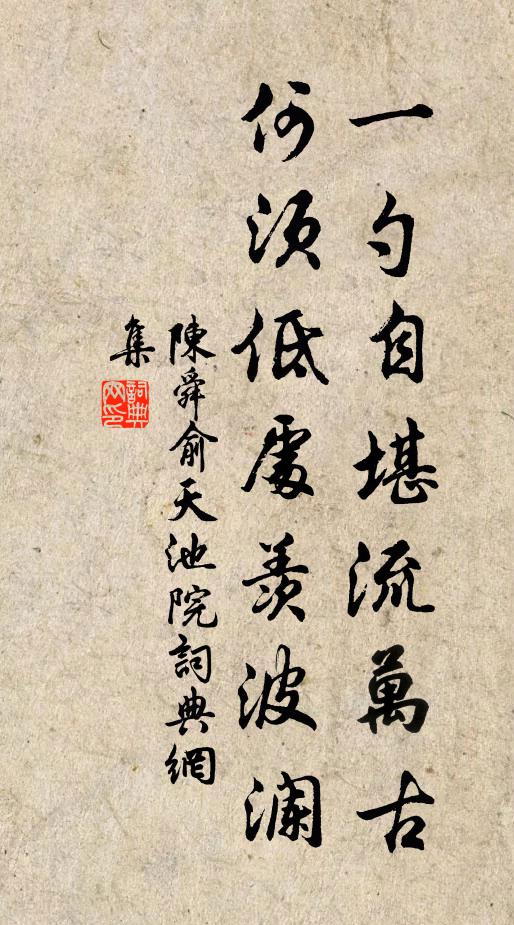 一勺自堪流萬古
何須低處羨波瀾
陳舜俞天池院詞典網
集
詞典
网印